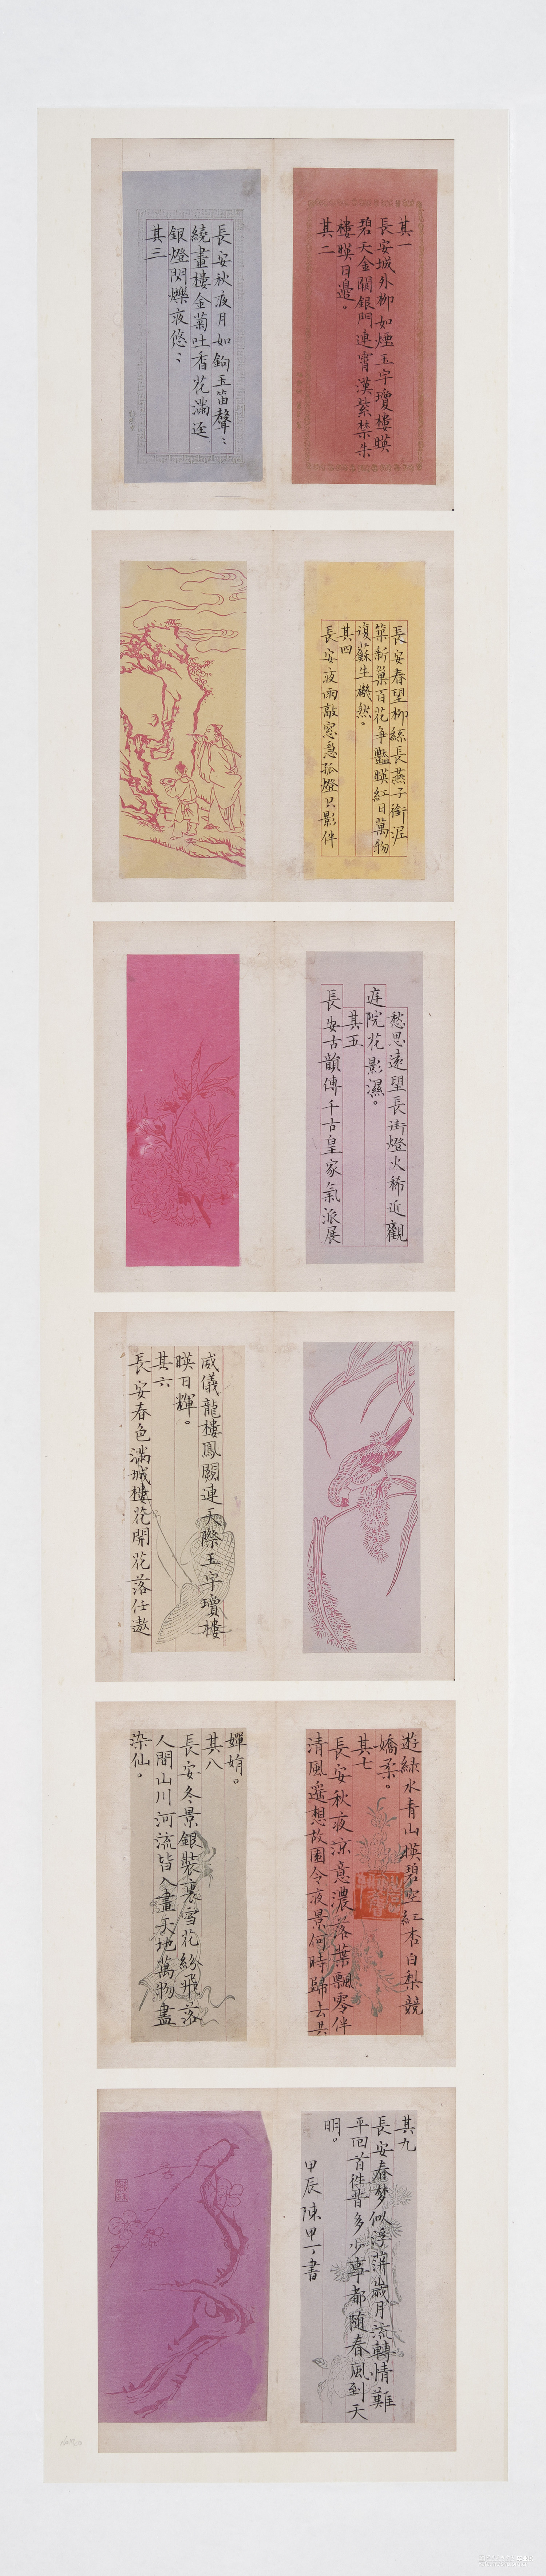 其一
長安城外柳如煙玉宇瓊樓暎
碧天金闕銀門連霄漢紫禁朱
樓暎日邊。
其二
長安秋夜月如鉤玉笛聲〻
繞畫樓金菊吐香花滿迳
銀燈閃爍夜悠〻
其三
長安春望柳絲長燕子銜泥
築新巢百花爭豔暎紅日萬物
復蘇生機然。
其四
長安夜雨敲窓急孤燈只影伴
愁思遠望長街燈火稀近觀
庭院花影濕。
其五
長安古韻傳千古皇家氣派展
威儀龍樓鳳闕連天際玉宇瓊樓
暎日輝。
其六
長安春色滿城樓花開花落任遨
遊綠水青山暎碧空紅杏白梨競
嬌柔。
其七
長安秋夜涼意濃落葉飄零伴
清風遥想故園今夜景何時歸去共
嬋娟。
其八
長安冬景銀裝裹雪花紛飛落
人間山川河流皆入畫天地萬物盡
染仙。
其九
長安春梦似浮萍歲月流轉情難
平回首往昔多少事都随春風到天
明。
甲辰陳甲丁書